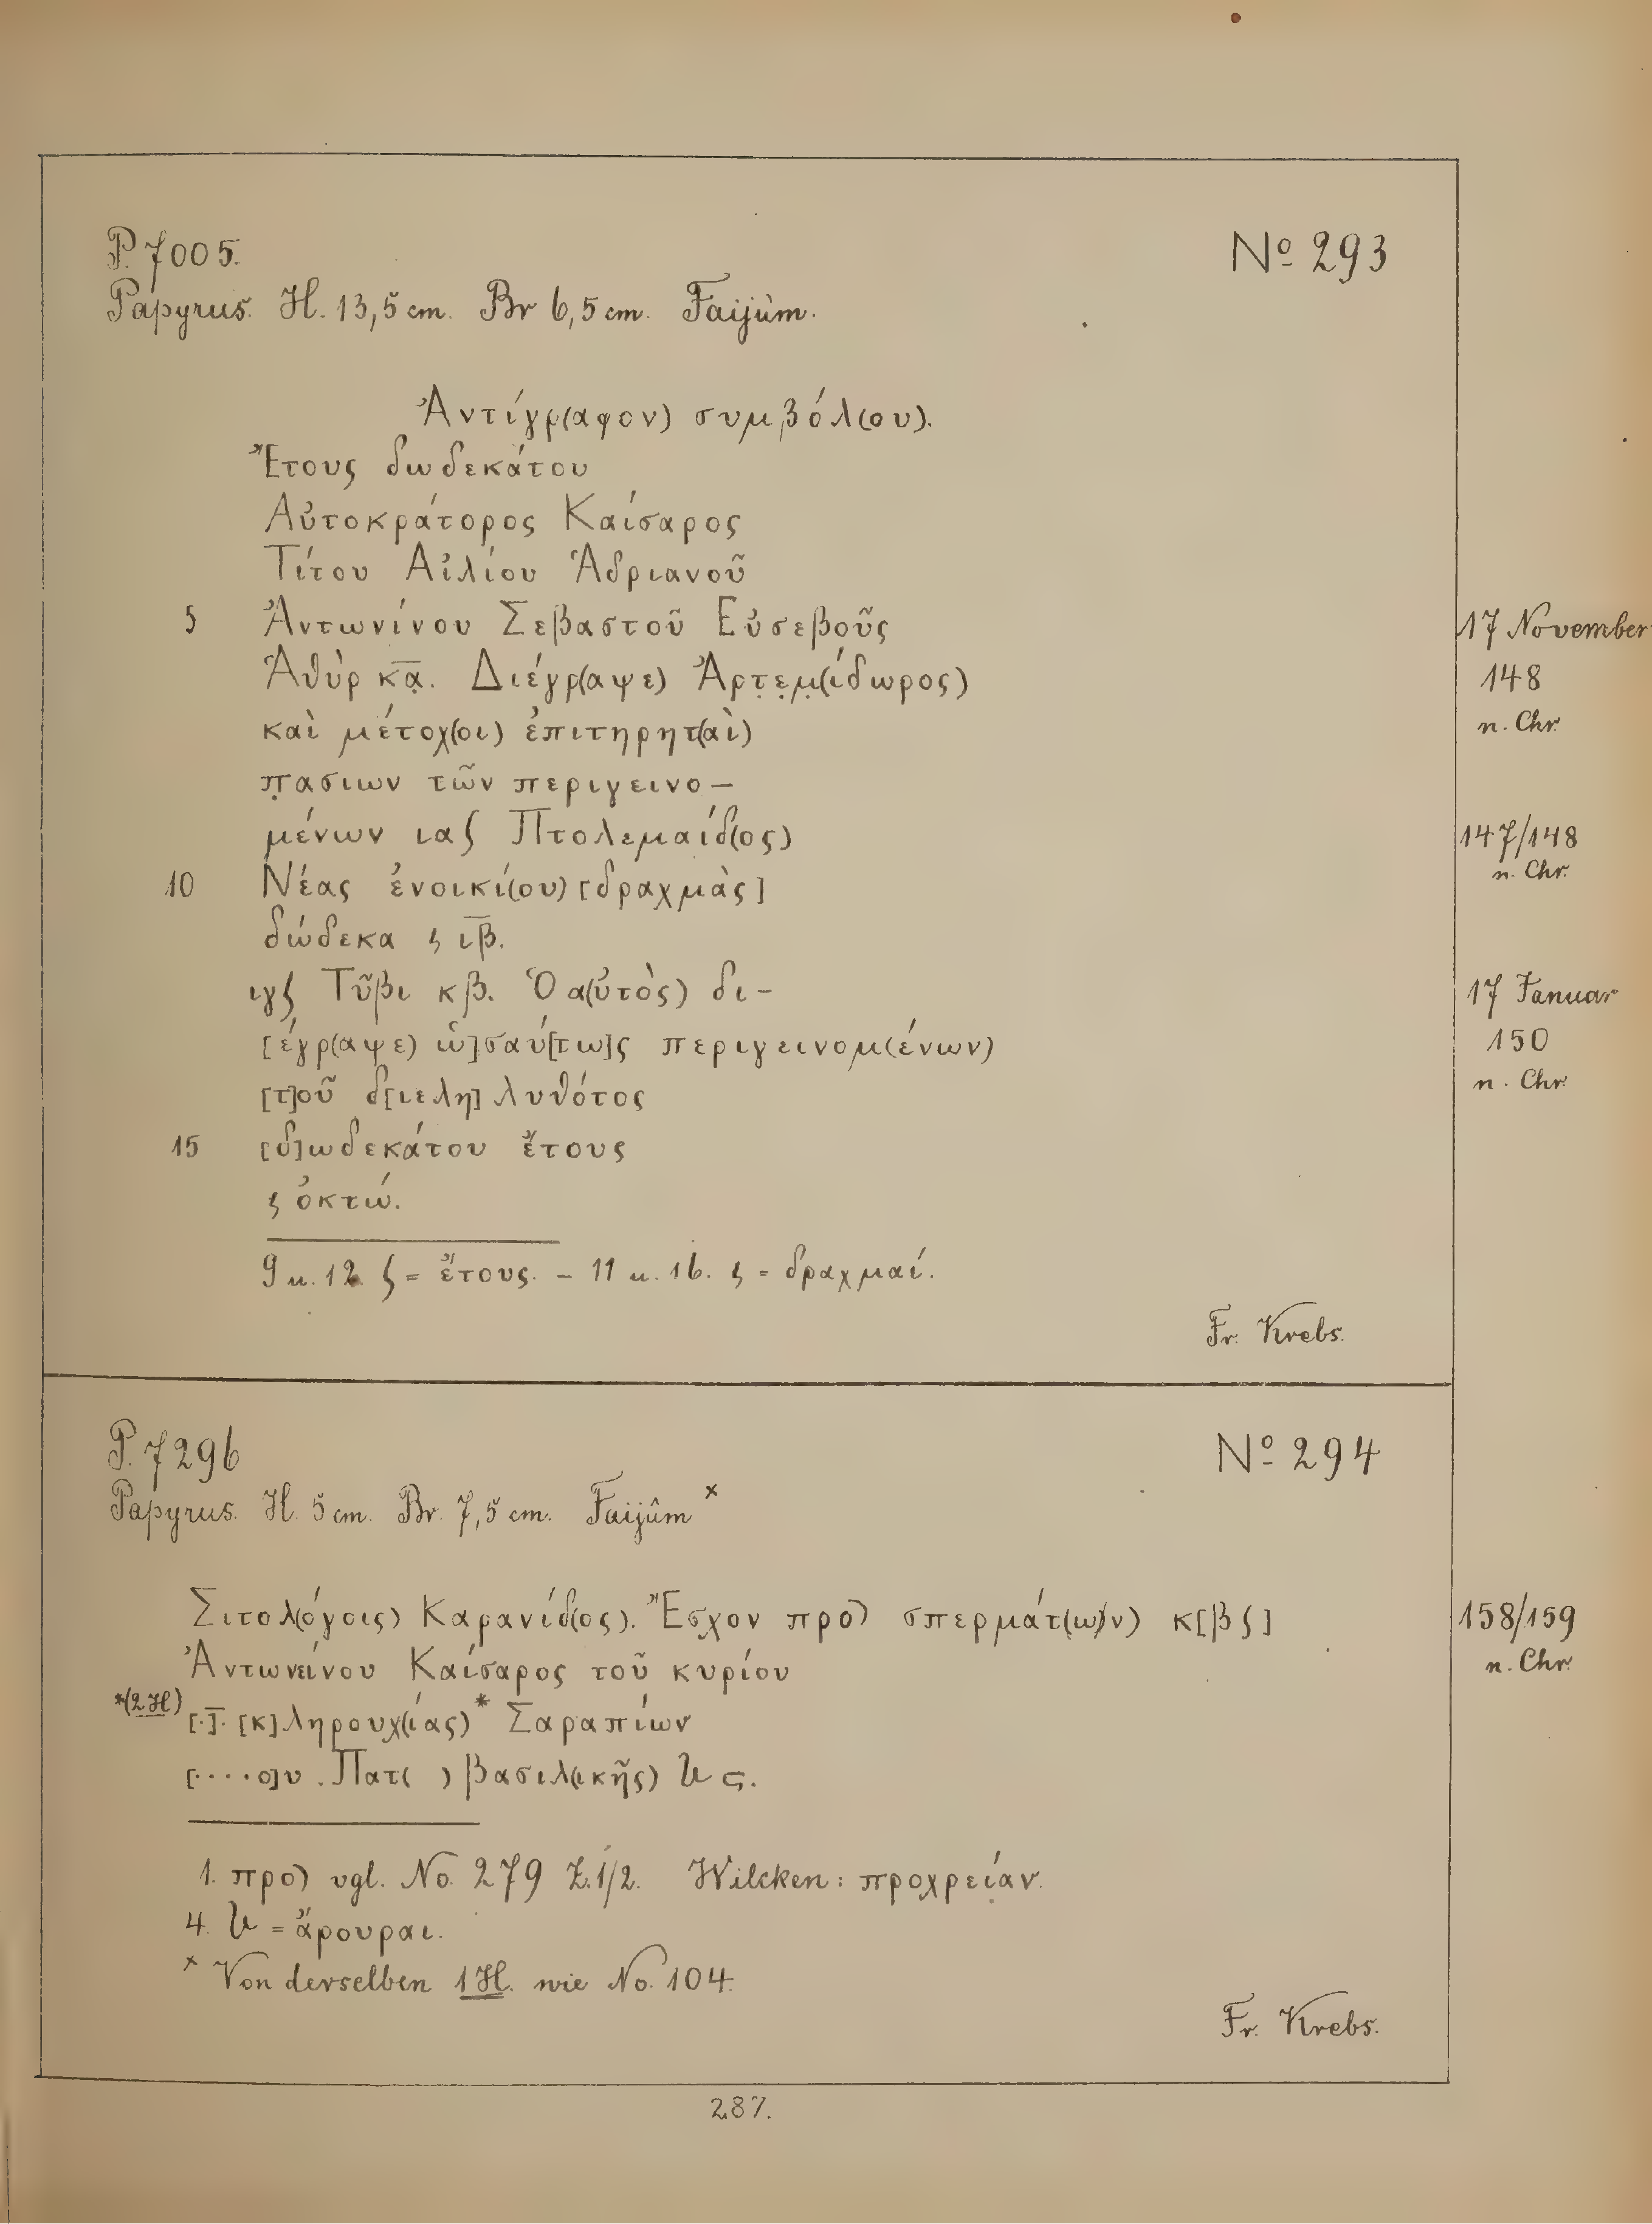 P. 7005. № 293
Papyrus. H. 13,5 cm. Br 6,5 cm. Faijûm.
Ἀντίγρ(αφον) συμβόλ(ου).
Ἔτους δωδεκάτου
Αὐτοκράτορος Καίσαρος
Τίτου Αἰλίου Ἁδριανοῦ
5 Ἀντωνίνου Σεβαστοῦ Εὐσεβοῦς 17 November
Ἁθὺρ κ̅α̣̅. Διέγρ(αψε) Ἀρτ̣ε̣μ̣(ίδωρος) 148
καὶ μέτοχ(οι) ἐπιτηρητ(αὶ) n. Chr.
π̣ασιων τῶν περιγεινο-
μένων ιαʃ Πτολεμαίδ(ος) 147/148
10 Νέας ἐνοικί(ου) [δραχμὰς] n. Chr.
δώδεκα ς ι̅β̅.
ιγʃ Τῦβι κβ. Ὁ α(ὐτὸς) δι- 17 Januar
[έγρ(αψε) ὡ]σαύ[τω]ς περιγεινομ(ένων) 150
[τ]οῦ δ[ιελη]λυθότος n. Chr.
15 [δ]ωδεκάτου ἔτους
ς ὀκτώ.
9 u. 12 ʃ = ἔτους. – 11 u. 16. ς = δραχμαί.
Fr. Krebs.
P. 7296 № 294
Papyrus. H. 5 cm. Br. 7,5 cm. Faijûm ×
Σιτολ(όγοις) Καρανίδ(ος). Ἔσχον προ) σπερμάτ(ω(ν) κ[βʃ] 158/159
Ἀντωνείνου Καίσαρος τοῦ κυρίου n. Chr.
*(2 H) [.]. [κ]ληρουχ(ίας)* Σαραπίων
[....ο]υ . Πατ( ) βασιλ(ικῆς) 𐅵 ϛ.
1. προ) vgl. No. 279 Z. 1/2. Wilcken: προχρείαν.
4. 𐅵 = ἄρουραι.
× Von derselben 1 H. wie No. 104.
Fr. Krebs.
287.